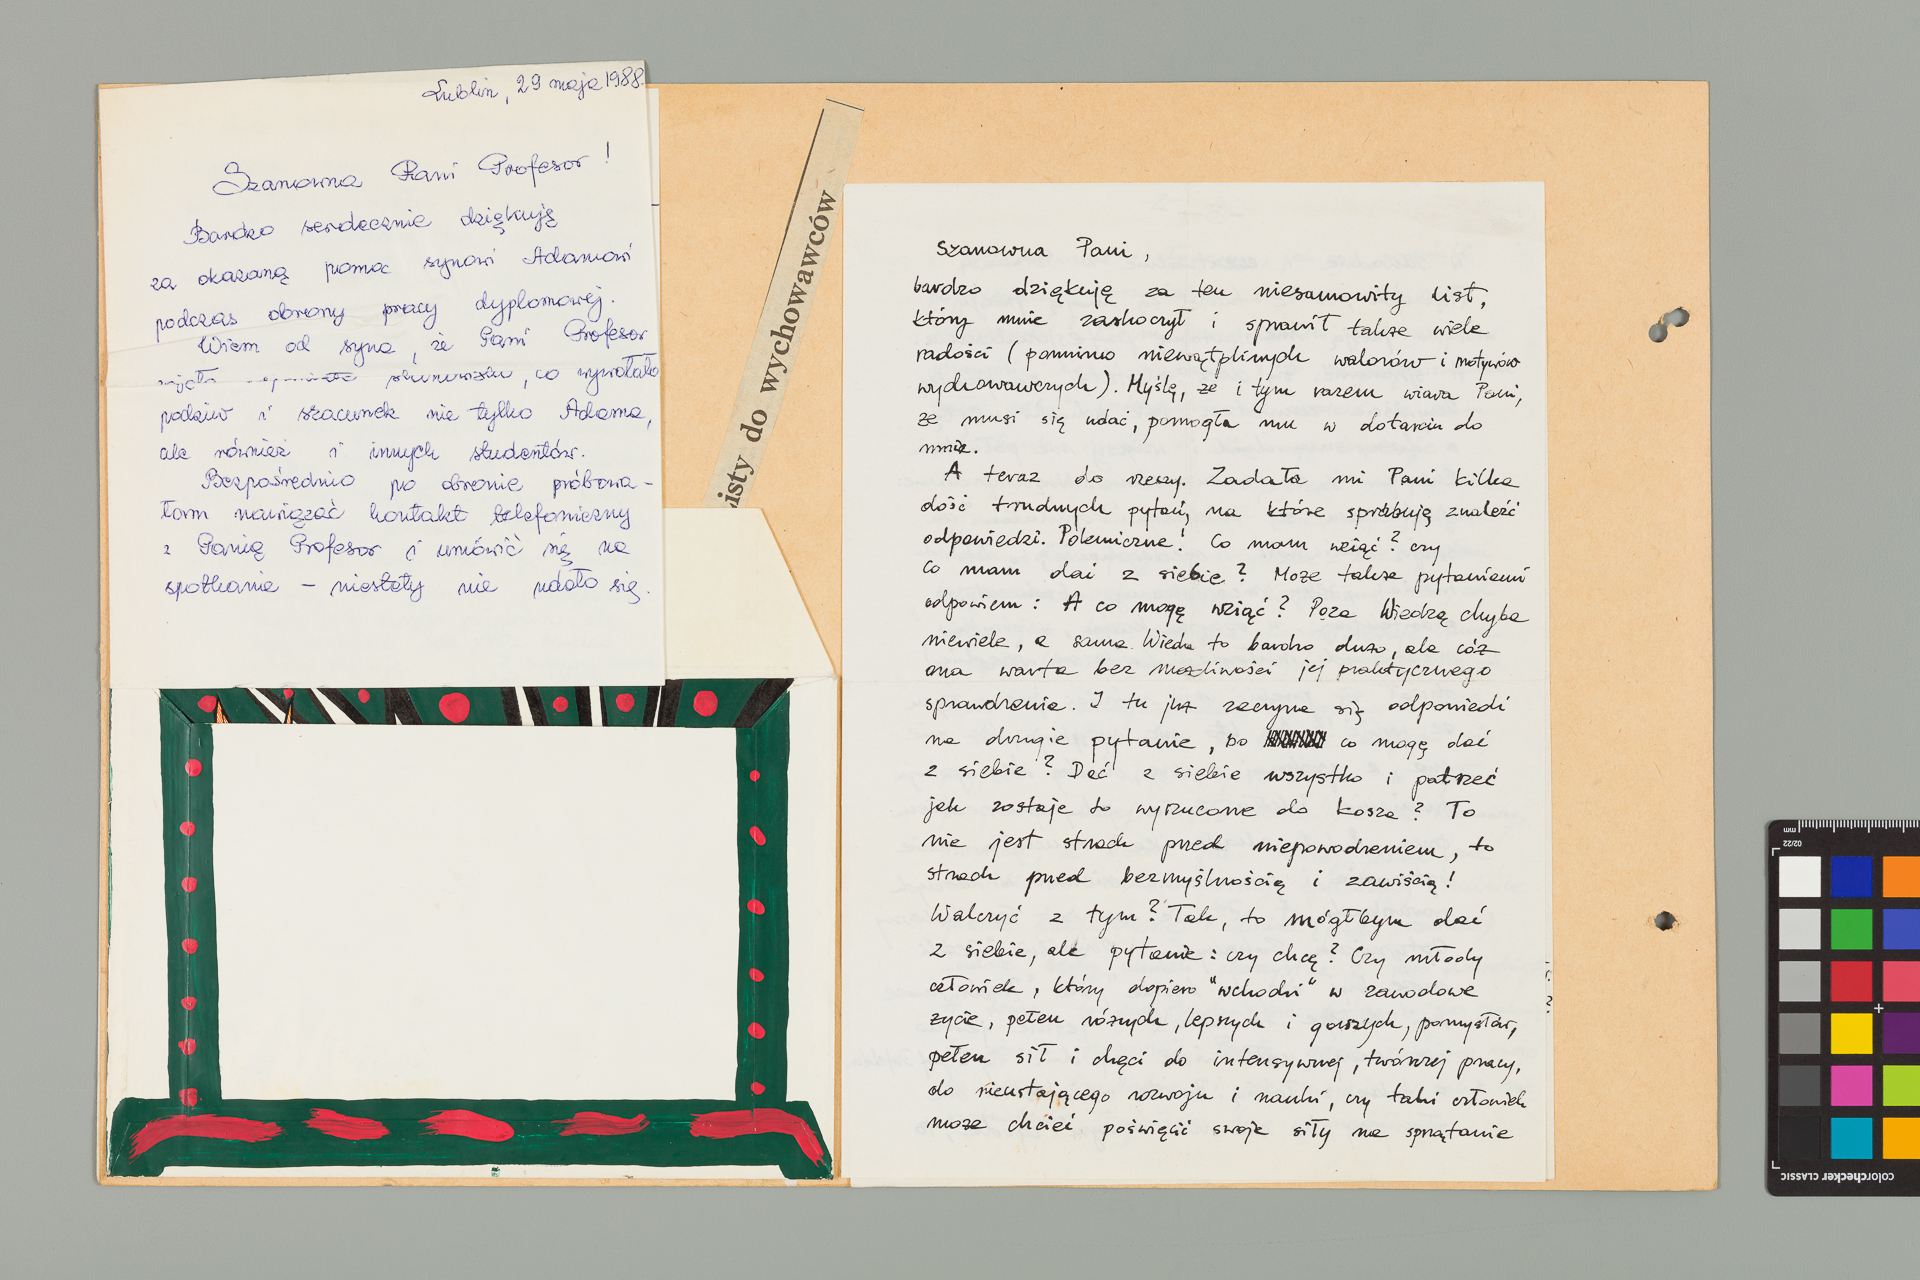 Lublin, 29 maja 1988.
Szanowna Pani Profesor!
Bardzo serdecznie dziękuję
za okazaną pomoc synowi Adamowi
podczas obrony pracy dyplomowej.
Wiem od syna, że Pani Profesor
zajęła stanowisko, co wywołało
podziw i szacunek nie tylko Adama,
ale również i innych studentów.
Bezpośrednio po obronie próbowa-
łam nawiązać kontakt telefoniczny
z Panią Profesor i umówić się na
spotkanie – niestety nie udało się.
listy do wychowawców
Szanowna Pani,
bardzo dziękuję za ten niesamowity list,
który mnie zaskoczył i sprawił także wiele
radości (pomimo niewątpliwych walorów i motywów
wychowawczych). Myślę, że i tym razem wiara Pani,
że musi się udać, pomogła mu w dotarciu do
mnie.
A teraz do rzeczy. Zadała mi Pani kilka
dość trudnych pytań, na które spróbuję znaleźć
odpowiedzi. Polemiczne! Co mam wziąć? czy
co mam dać z siebie? Może także pytaniami
odpowiem: A co mogę wziąć? Poza Wiedzą chyba
niewiele, a sama Wiedza to bardzo dużo, ale cóż
ona warta bez możliwości jej praktycznego
sprawdzenia. I tu już zaczyna się odpowiedź
na drugie pytanie, bo co mogę dać
z siebie? Dać z siebie wszystko i patrzeć
jak zostaje to wyrzucone do kosza? To
nie jest strach przed niepowodzeniem, to
strach przed bezmyślnością i zawiścią!
Walczyć z tym? Tak, to mógłbym dać
z siebie, ale pytanie: czy chcę? Czy młody
człowiek, który dopiero "wchodzi" w zawodowe
życie, pełen różnych, lepszych i gorszych, pomysłów,
pełen sił i chęci do intensywnej, twórczej pracy,
do nieustającego rozwoju i nauki, czy taki człowiek
może chcieć poświęcić swoje siły na sprzątanie
mm
02/22
colorchecker CLASSIC